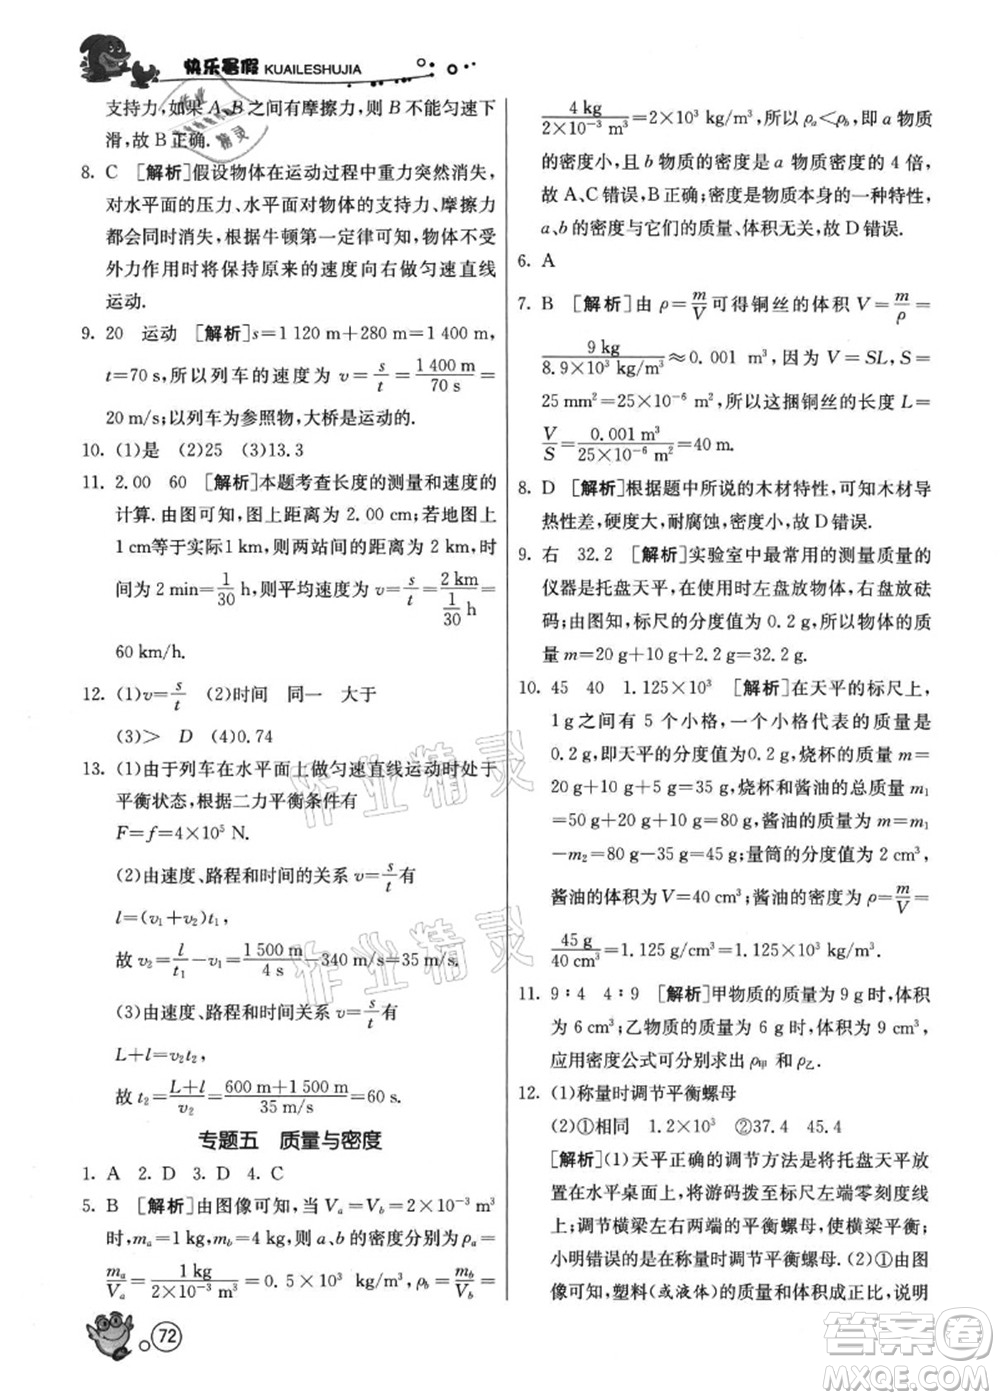 快乐暑假 KUAILESHUJIA
支持力,如果 A、B 之间有摩擦力,则 B 不能匀速下
滑,故 B 正确.
8. C [解析]假设物体在运动过程中重力突然消失,
对水平面的压力、水平面对物体的支持力、摩擦力
都会同时消失,根据牛顿第一定律可知,物体不受
外力作用时将保持原来的速度向右做匀速直线
运动.
9. 20 运动 [解析]s=1 120 m+280 m=1 400 m,
t=70 s,所以列车的速度为 v=s/t=1 400 m/70 s=
20 m/s;以列车为参照物,大桥是运动的.
10. (1)是 (2)25 (3)13.3
11. 2.00 60 [解析]本题考查长度的测量和速度的
计算.由图可知,图上距离为 2.00 cm;若地图上
1 cm等于实际1 km,则两站间的距离为 2 km,时
间为 2 min=1/30 h,则平均速度为 v=s/t=2 km/(1/30 h)=
60 km/h.
12. (1)v=s/t (2)时间 同一 大于
(3)> D (4)0.74
13. (1)由于列车在水平面上做匀速直线运动时处于
平衡状态,根据二力平衡条件有
F=f=4×10⁵ N.
(2)由速度、路程和时间的关系 v=s/t有
l=(v₁+v₂)t₁
故 v₂=l/t₁-v₁=1 500 m/4 s-340 m/s=35 m/s.
(3)由速度、路程和时间的关系 v=s/t有
L+l=v₂t₂,
故 t₂=(L+l)/v₂=(600 m+1 500 m)/35 m/s=60 s.
专题五 质量与密度
1. A 2. D 3. D 4. C
5. B [解析]由图像可知,当 Vₐ=V_b=2×10⁻³ m³
时,mₐ=1 kg,m_b=4 kg,则 a、b 的密度分别为 ρₐ=
mₐ/Vₐ=1 kg/(2×10⁻³ m³)=0.5×10³ kg/m³,ρ_b=m_b/V_b=
4 kg/(2×10⁻³ m³)=2×10³ kg/m³,所以 ρₐ<ρ_b,即 a 物质
的密度小,且 b 物质的密度是 a 物质密度的 4 倍,
故 A、C 错误,B 正确;密度是物质本身的一种特性,
a、b 的密度与它们的质量、体积无关,故 D 错误.
6. A
7. B [解析]由 ρ=m/V可得铜丝的体积 V=m/ρ=
9 kg/(8.9×10³ kg/m³)≈0.001 m³,因为 V=SL,S=
25 mm²=25×10⁻⁶ m²,所以这捆铜丝的长度 L=
V/S=0.001 m³/(25×10⁻⁶ m²)=40 m.
8. D [解析]根据题中所说的木材特性,可知木材导
热性差,硬度大,耐腐蚀,密度小,故 D 错误.
9. 右 32.2 [解析]实验室中最常用的测量质量的
仪器是托盘天平,使用时左盘放物体,右盘放砝
码;由图知,标尺的分度值为 0.2 g,所以物体的质
量 m=20 g+10 g+2.2 g=32.2 g.
10. 45 40 1.125×10³ [解析]在天平的标尺上,
1 g之间有 5 个小格,一个小格代表的质量是
0.2 g,即天平的分度值为 0.2 g,烧杯的质量 m₂=
20 g+10 g+5 g=35 g,烧杯和酱油的总质量 m₁
=50 g+20 g+10 g=80 g,酱油的质量为 m=m₁
-m₂=80 g-35 g=45 g;量筒的分度值为 2 cm³,
酱油的体积为 V=40 cm³;酱油的密度为 ρ=m/V=
45 g/40 cm³=1.125 g/cm³=1.125×10³ kg/m³.
11. 9∶4 4∶9 [解析]甲物质的质量为 9 g时,体积
为 6 cm³;乙物质的质量为 6 g时,体积为 9 cm³,
应用密度公式可分别求出 ρ甲 和 ρ乙.
12. (1)称量时调节平衡螺母
(2)①相同 1.2×10³ ②37.4 45.4
[解析](1)天平正确的调节方法是将托盘天平放
在水平桌面上,将游码拨至标尺左端零刻度线
上;调节横梁左右两端的平衡螺母,使横梁平衡;
小明错误的是在称量时调节平衡螺母.(2)①由图
像可知,塑料(或液体)的质量和体积成正比,说明
72
作业精灵
作业精灵
作业精灵
答案卷
MXQE.COM